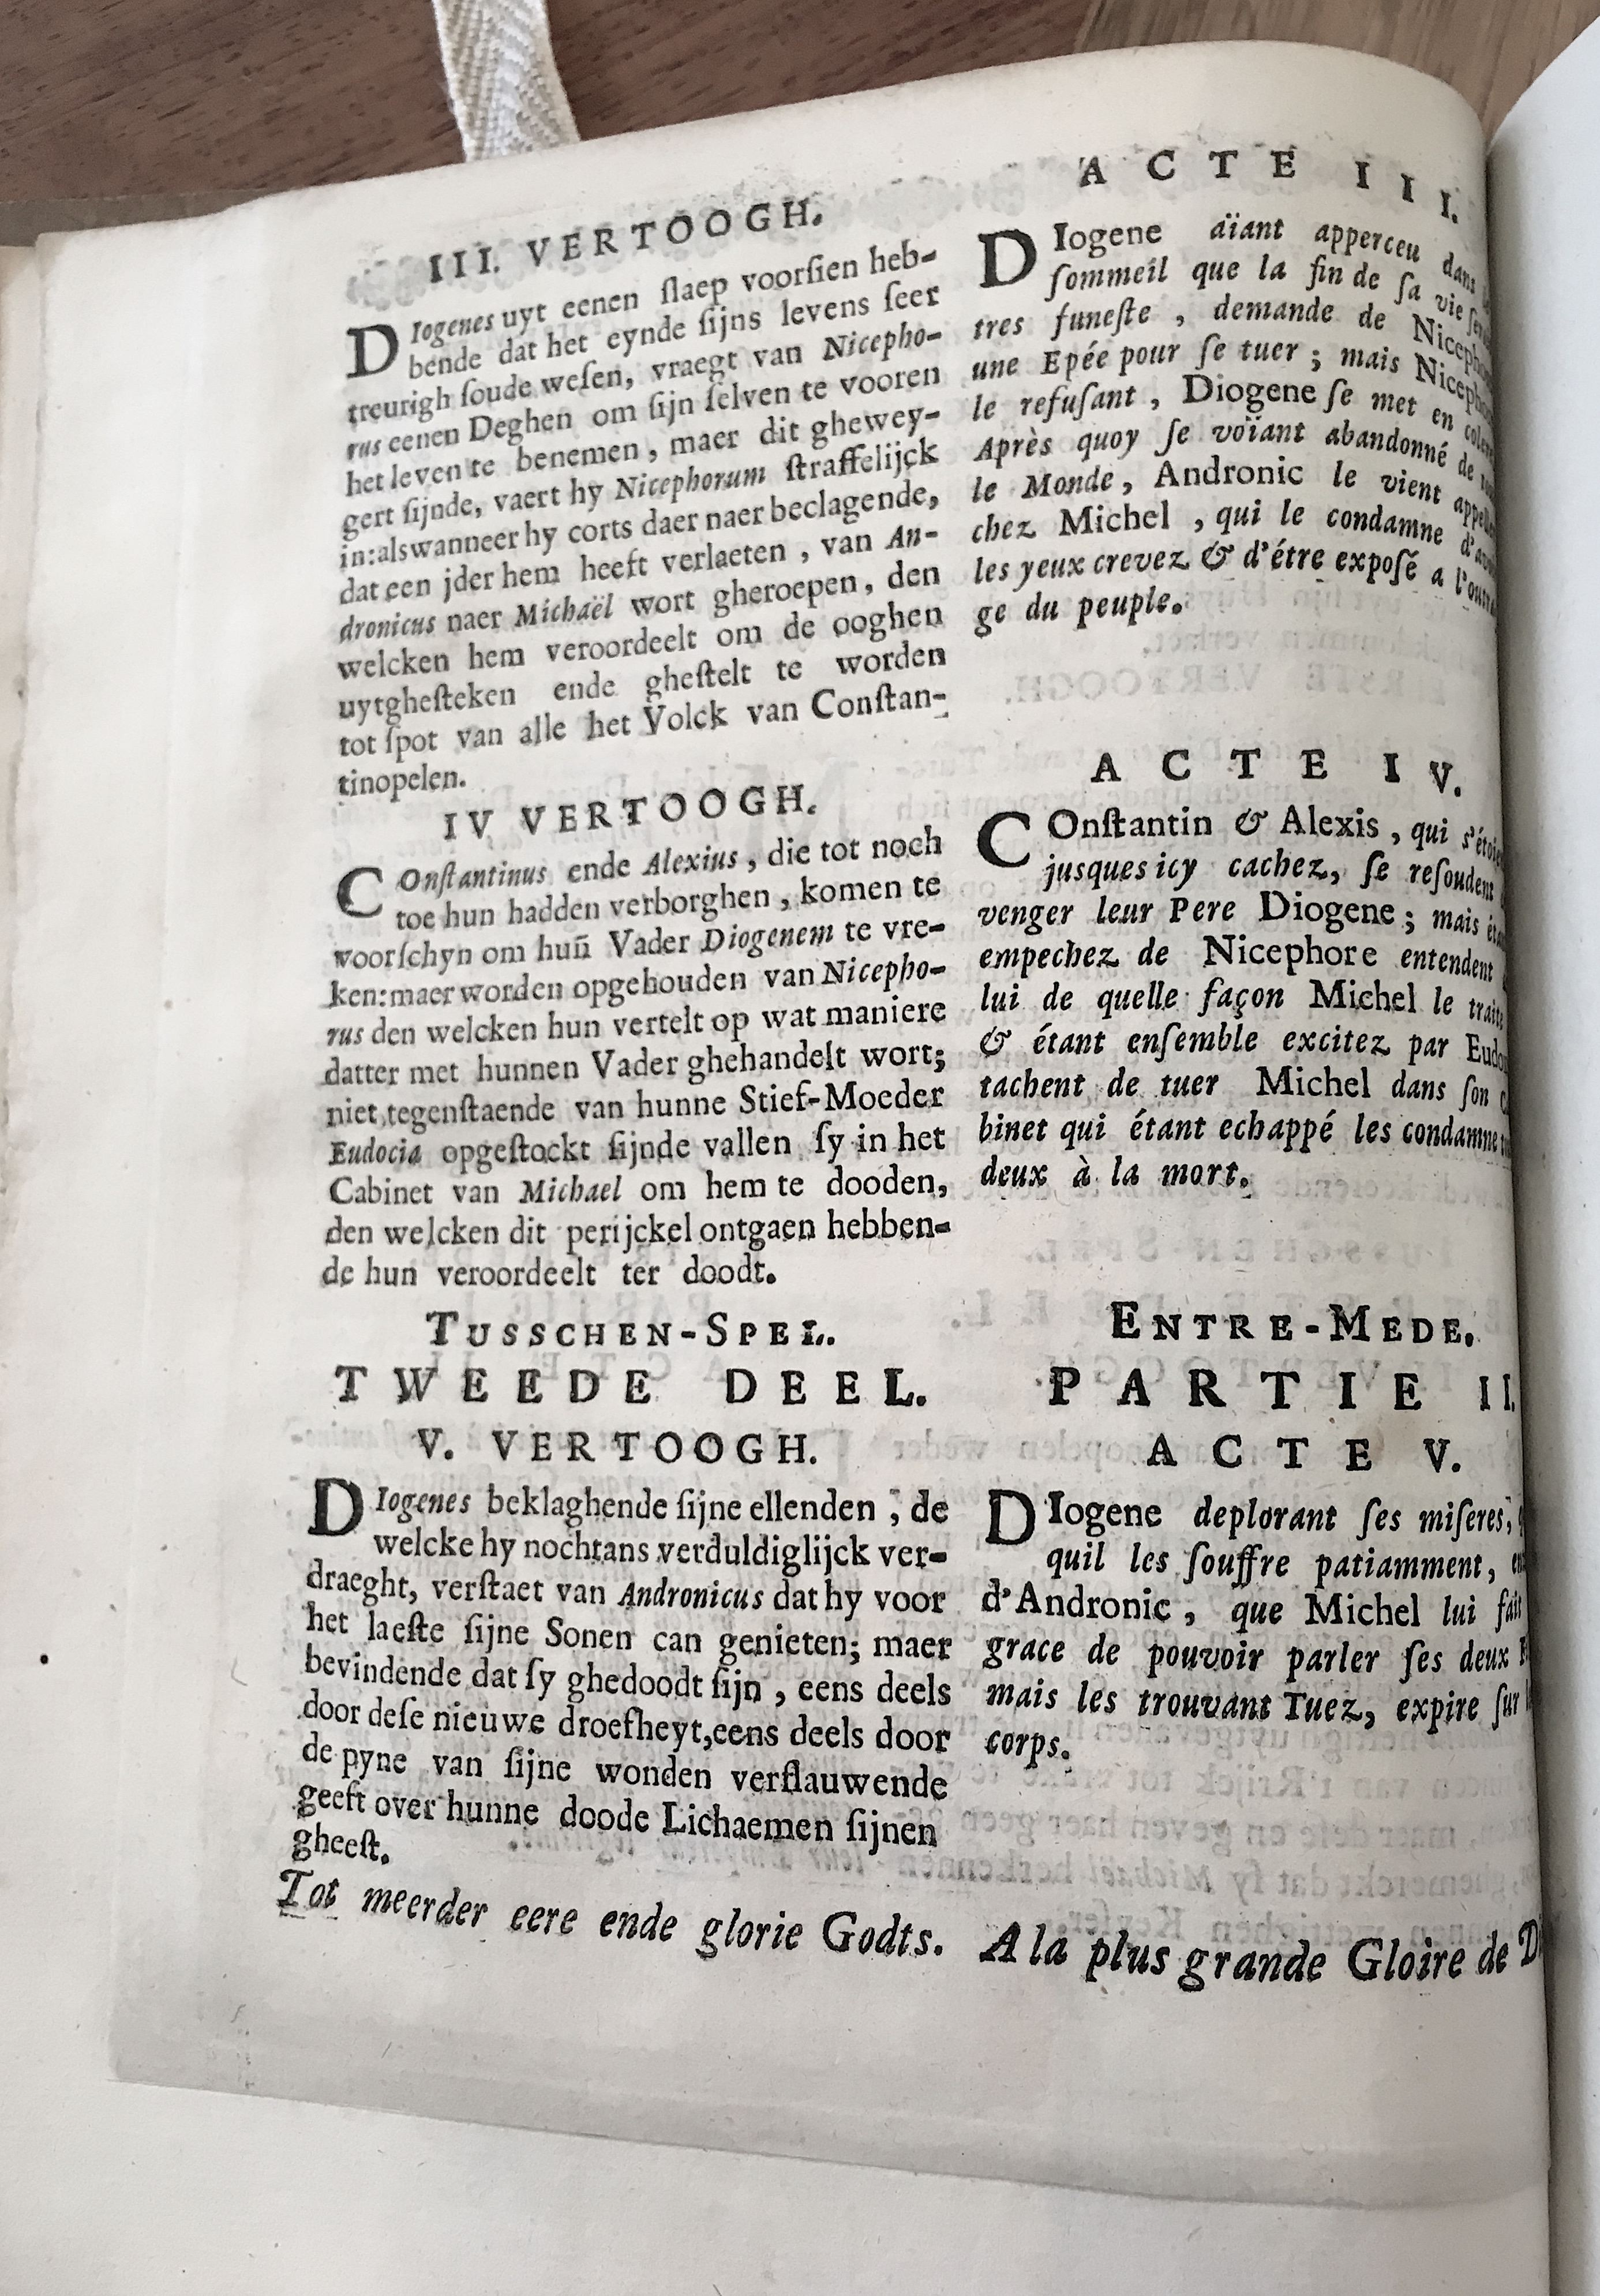 III. VERTOOGH.
DIogenes uyt eenen ſlaep voorſien heb-
bende dat het eynde ſijns levens ſeer
treurigh ſoude weſen, vraegt van Nicepho-
rus eenen Deghen om ſijn ſelven te vooren
het leven te benemen, maer dit ghewey-
gert ſijnde, vaert hy Nicephorum ſtraffelijck
in: alswanneer hy corts daer naer beclagende,
dat een jder hem heeft verlaeten, van An-
dronicus naer Michaël wort gheroepen, den
welcken hem veroordeelt om de ooghen
uytgheſteken ende gheſtelt te worden
tot ſpot van alle het Volck van Conſtan-
tinopelen.
IV VERTOOGH.
COnſtantinus ende Alexius, die tot noch
toe hun hadden verborghen, komen te
voorſchyn om huñ Vader Diogenem te vre-
ken: maer worden opgehouden van Nicepho-
rus den welcken hun vertelt op wat maniere
datter met hunnen Vader ghehandelt wort;
niet tegenſtaende van hunne Stief-Moeder
Eudocia opgeſtockt ſijnde vallen ſy in het
Cabinet van Michael om hem te dooden,
den welcken dit perijckel ontgaen hebben-
de hun veroordeelt ter doodt.
TUSSCHEN-SPEL.
TWEEDE DEEL.
V. VERTOOGH.
DIogenes beklaghende ſijne ellenden, de
welcke hy nochtans verduldiglijck ver-
draeght, verſtaet van Andronicus dat hy voor
het laeſte ſijne Sonen can genieten; maer
bevindende dat ſy ghedoodt ſijn, eens deels
door deſe nieuwe droefheyt, eens deels door
de pyne van ſijne wonden verflauwende
geeft over hunne doode Lichaemen ſijnen
gheeſt.
Tot meerder eere ende glorie Godts.
ACTE III.
DIogene aïant apperceu dans
ſommeil que la fin de ſa vie
tres funeſte, demande de
une Epée pour ſe tuer; mais
le refuſant, Diogene ſe met en
Après quoy ſe voïant abandonné de
le Monde, Andronic le vient
chez Michel, qui le condamne
les yeux crevez & d'étre expoſé a
ge du peuple.
ACTE IV.
COnſtantin & Alexis, qui
jusques icy cachez, ſe reſoudent
venger leur Pere Diogene; mais
empechez de Nicephore entendent
lui de quelle façon Michel le
& étant enſemble excitez par
tachent de tuer Michel dans ſon
binet qui étant echappé les condamne
deux à la mort.
ENTRE-MEDE.
PARTIE II.
ACTE V.
DIogene deplorant ſes miſeres,
quil les ſouffre patiamment,
d'Andronic, que Michel lui
grace de pouvoir parler ſes deux
mais les trouvant Tuez, expire ſur
corps.
A la plus grande Gloire de